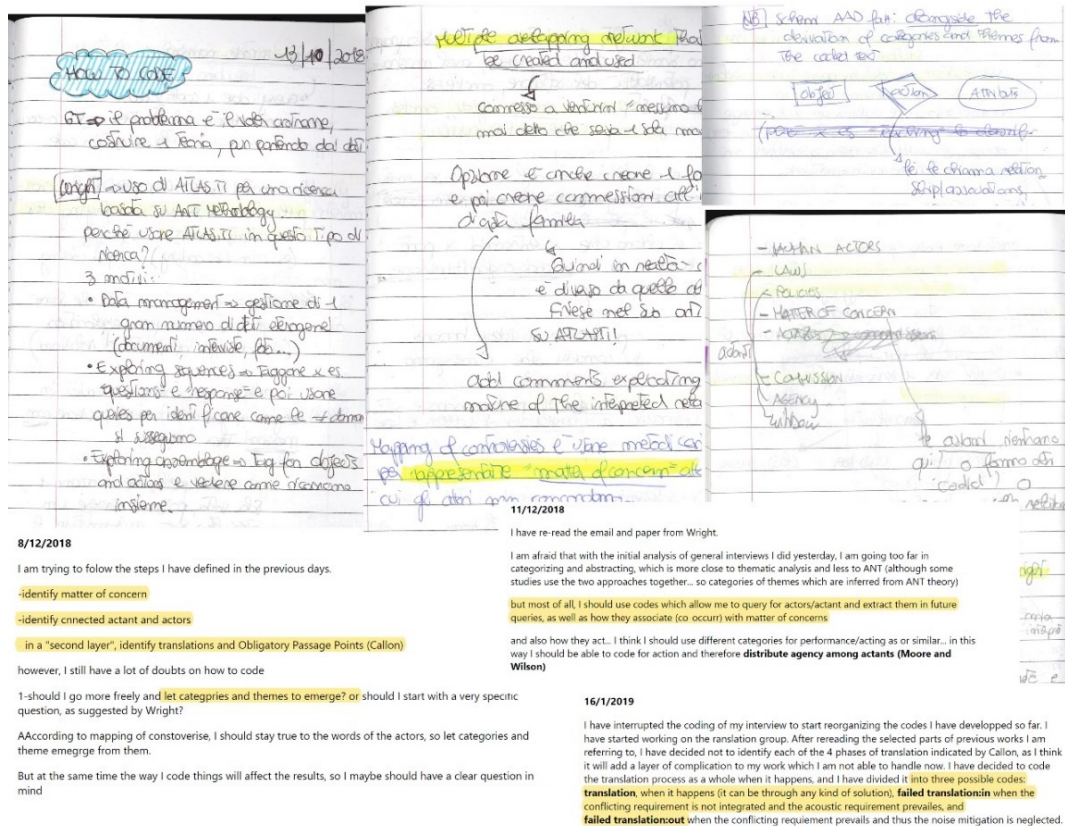 13/10/2018
HOW TO CODE
GT => il problema è il voler
costruire 1 teoria, pur partendo dai dati
Wright => uso di ATLAS.TI per una ricerca
basata su ANT
perché usare ATLAS.TI in questo tipo di
ricerca?
3 motivi:
• Data management => gestione di 1
gran numero di dati eterogenei
(documenti, interviste, foto...)
• Exploring sequences => taggare x es
questions e response e poi usare
queries per identificare come le
si susseguono
• Exploring assemblage => tag for objects
and actions e vedere come ricorrono
insieme.
Multiple overlapping network
be created and used
connesso a
mai detto che
Opzione è anche creare 1
e poi creare connessioni
d'
Quindi in realtà
è diverso da quello
SU ATLASTI!
add comments explicating
nature of the interpreted
Mapping of controversies è usare metodi
per rappresentare "matter of concern"
cui gli altri non concordano.
NB Schemi AAD fatti alongside the
derivation of categories and themes from
the coded text
object
action
Attribute
le chiama relation
ship/associations
- HUMAN ACTORS
- LAWS
- POLICIES
- MATTER OF CONCERN
- COMMISSION
- AGENCY
- WINDOW
attanti
gli attanti rientrano
qui? o fanno
codici? o
8/12/2018
I am trying to folow the steps I have defined in the previous days.
-identify matter of concern
-identify cnnected actant and actors
in a "second layer", identify translations and Obligatory Passage Points (Callon)
however, I still have a lot of doubts on how to code
1-should I go more freely and let categpries and themes to emerge? or should I start with a very specific
question, as suggested by Wright?
AAccording to mapping of constoverise, I should stay true to the words of the actors, so let categories and
theme emegrge from them.
But at the same time the way I code things will affect the results, so I maybe should have a clear question in
mind
11/12/2018
I have re-read the email and paper from Wright.
I am afraid that with the initial analysis of general interviews I did yesterday, I am going too far in
categorizing and abstracting, which is more close to thematic analysis and less to ANT (although some
studies use the two approaches together... so categories of themes which are inferred from ANT theory)
but most of all, I should use codes which allow me to query for actors/actant and extract them in future
queries, as well as how they associate (co occurr) with matter of concerns
and also how they act... I think I should use different categories for performance/acting as or similar... in this
way I should be able to code for action and therefore distribute agency among actants (Moore and
Wilson)
16/1/2019
I have interrupted the coding of my interview to start reorganizing the codes I have developped so far. I
have started working on the ranslation group. After rereading the selected parts of previous works I am
referring to, I have decided not to identify each of the 4 phases of translation indicated by Callon, as I think
it will add a layer of complication to my work which I am not able to handle now. I have decided to code
the translation process as a whole when it happens, and I have divided it into three possible codes:
translation, when it happens (it can be through any kind of solution), failed translation:in when the
conflicting requirement is not integrated and the acoustic requirement prevailes, and
failed translation:out when the conflicting requiement prevails and thus the noise mitigation is neglected.